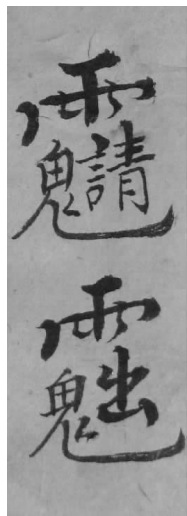 ⿱雨⿺鬼請
⿱雨⿺鬼出